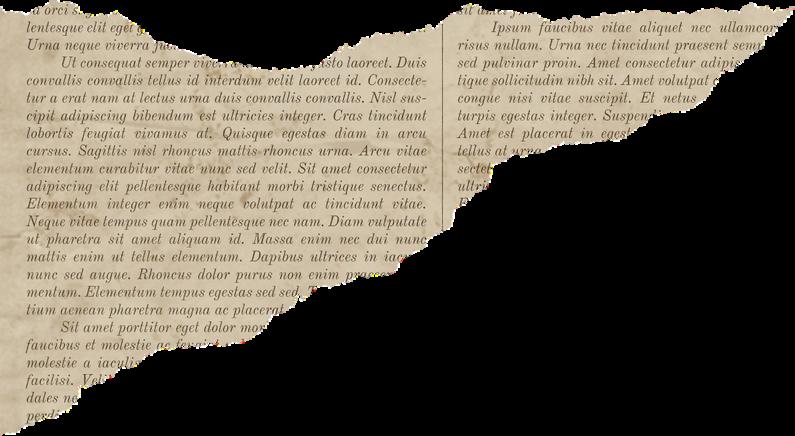 lentesque elit eget
Urna neque viverra
Ut consequat semper viverra justo laoreet. Duis
convallis convallis tellus id interdum velit laoreet id. Consecte-
tur a erat nam at lectus urna duis convallis convallis. Nisl sus-
cipit adipiscing bibendum est ultricies integer. Cras tincidunt
lobortis feugiat vivamus at. Quisque egestas diam in arcu
cursus. Sagittis nisl rhoncus mattis rhoncus urna. Arcu vitae
elementum curabitur vitae nunc sed velit. Sit amet consectetur
adipiscing elit pellentesque habitant morbi tristique senectus.
Elementum integer enim neque volutpat ac tincidunt vitae.
Neque vitae tempus quam pellentesque nec nam. Diam vulputate
ut pharetra sit amet aliquam id. Massa enim nec dui nunc
mattis enim ut tellus elementum. Dapibus ultrices in
nunc sed augue. Rhoncus dolor purus non enim
mentum. Elementum tempus egestas sed sed.
tium aenean pharetra magna ac placerat
Sit amet porttitor eget dolor
faucibus et molestie ac
molestie a iaculis
facilisi.
dales
Ipsum faucibus vitae aliquet nec
risus nullam. Urna nec tincidunt praesent
sed pulvinar proin. Amet consectetur
tique sollicitudin nibh sit. Amet volutpat
congue nisi vitae suscipit. Et netus
turpis egestas integer.
Amet est placerat in
tellus at urna